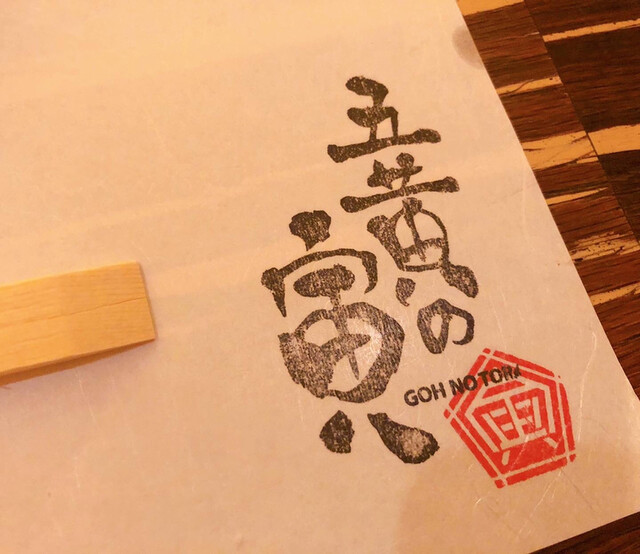 五黄の
寅
GOH NO TORA
興